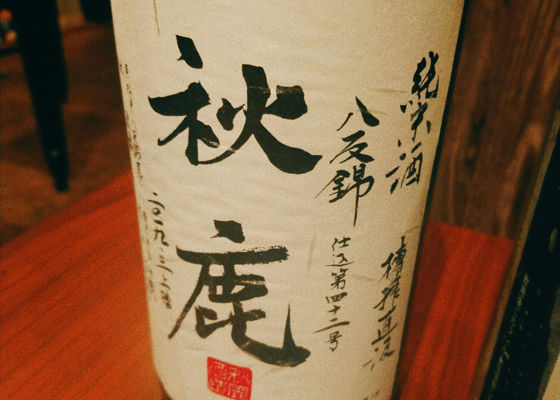 純米酒 槽搾直汲
八反錦
仕込第四十二号
秋鹿
二〇一九、三、上槽